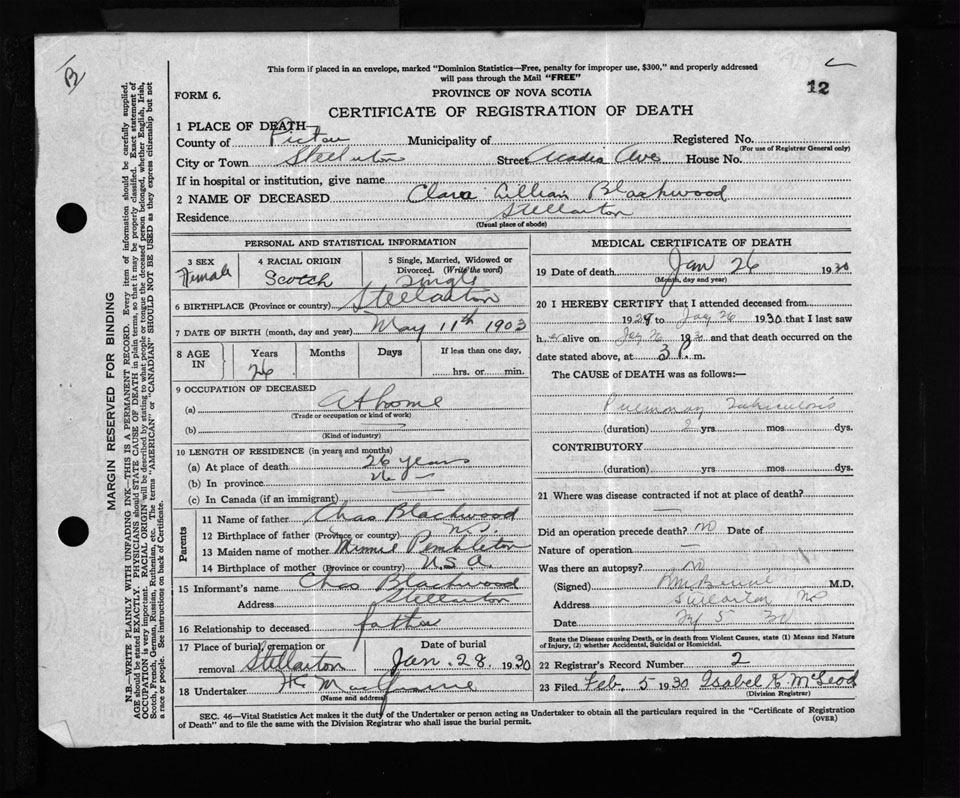 This form if placed in an envelope, marked "Dominion Statistics—Free, penalty for improper use, $300," and properly addressed
will pass through the Mail "FREE"
12
FORM 6.
PROVINCE OF NOVA SCOTIA
CERTIFICATE OF REGISTRATION OF DEATH
1 PLACE OF DEATH
County of Pictou Municipality of Registered No.
(For use of Registrar General only)
City or Town Stellarton Street Acadia Ave House No.
If in hospital or institution, give name
2 NAME OF DECEASED Clara Lillian Blackwood
Residence Stellarton
(Usual place of abode)
PERSONAL AND STATISTICAL INFORMATION
3 SEX Female
4 RACIAL ORIGIN Scotch
5 Single, Married, Widowed or Divorced. (Write the word) Single
6 BIRTHPLACE (Province or country) Stellarton
7 DATE OF BIRTH (month, day and year) May 11th 1903
8 AGE IN Years 26 Months Days If less than one day, hrs. or min.
9 OCCUPATION OF DECEASED
(a) At home
(Trade or occupation or kind of work)
(b) —
(Kind of industry)
10 LENGTH OF RESIDENCE (in years and months)
(a) At place of death 26 years
(b) In province
(c) In Canada (if an immigrant) —
Parents
11 Name of father Chas Blackwood
12 Birthplace of father (Province or country) N.S.
13 Maiden name of mother Minnie Pembleton
14 Birthplace of mother (Province or country) U.S.A.
15 Informant's name Chas Blackwood
Address Stellarton
16 Relationship to deceased father
17 Place of burial, cremation or removal Stellarton
Date of burial Jan. 28. 1930
18 Undertaker
(Name and address)
MEDICAL CERTIFICATE OF DEATH
19 Date of death Jan 26 1930
(Month, day and year)
20 I HEREBY CERTIFY that I attended deceased from
1929 to 26 1930 that I last saw
h er alive on and that death occurred on the
date stated above, at 3 P. m.
The CAUSE OF DEATH was as follows:—
Pulmonary Tuberculosis
(duration) 2 yrs mos dys.
CONTRIBUTORY
(duration) yrs mos dys.
21 Where was disease contracted if not at place of death?
—
Did an operation precede death? No Date of
Nature of operation —
Was there an autopsy? No
(Signed) M.D.
Address Stellarton NS
Date 5 30
State the Disease causing Death, or in death from Violent Causes, state (1) Means and Nature
of Injury, (2) whether Accidental, Suicidal or Homicidal.
22 Registrar's Record Number 2
23 Filed Feb. 5 1930 Isabel K. McLeod
(Division Registrar)
SEC. 46—Vital Statistics Act makes it the duty of the Undertaker or person acting as Undertaker to obtain all the particulars required in the "Certificate of Registration
of Death" and to file the same with the Division Registrar who shall issue the burial permit.
(OVER)
MARGIN RESERVED FOR BINDING
N.B.—WRITE PLAINLY WITH UNFADING INK—THIS IS A PERMANENT RECORD. Every item of information should be carefully supplied.
AGE should be stated EXACTLY. PHYSICIANS should STATE CAUSE OF DEATH in plain terms, so that it may be properly classified. Exact statement of
OCCUPATION is very important. RACIAL ORIGIN will be described by stating to what people or tongue the deceased person belonged, whether English, Irish,
Scotch, French, German, Russian, Ruthenian, etc. The terms "AMERICAN" or "CANADIAN" SHOULD NOT BE USED as they express citizenship but not
a race or people. See instructions on back of Certificate.